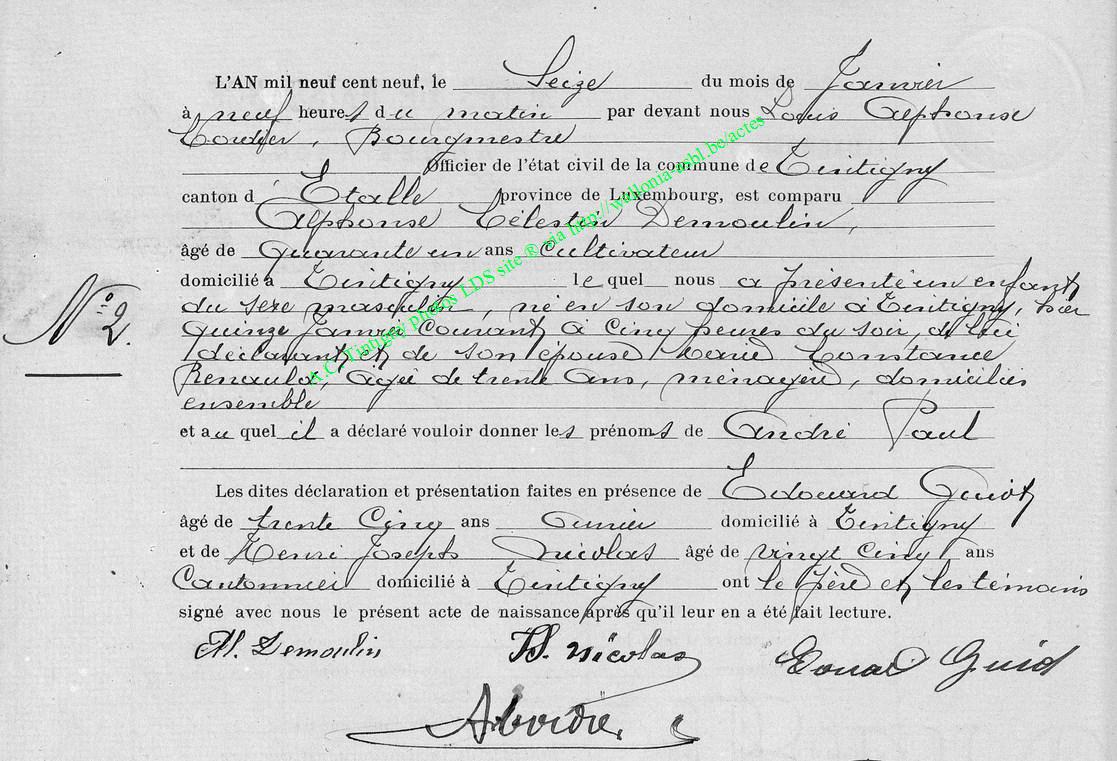 L'AN mil neuf cent neuf, le Seize du mois de Janvier
à neuf heures du matin par devant nous Louis Alphonse
Bourgmestre
Officier de l'état civil de la commune de Tintigny
canton d'Etalle province de Luxembourg, est comparu
Alphonse Célestin Demoulin,
âgé de quarante un ans cultivateur
domicilié à Tintigny lequel nous a présenté un enfant
N° 2.
du sexe masculin, né en son domicile à Tintigny, hier
quinze Janvier courant, à cinq heures du soir, de lui
déclarant et de son épouse Marie Constance
Renauld, âgée de trente ans, ménagère, domiciliés
ensemble
et auquel il a déclaré vouloir donner les prénoms de André Paul
Les dites déclaration et présentation faites en présence de Edouard Guiot
âgé de trente cinq ans ouvrier domicilié à Tintigny
et de Henri Joseph Nicolas âgé de vingt cinq ans
Cantonnier domicilié à Tintigny ont le père et les témoins
signé avec nous le présent acte de naissance après qu'il leur en a été fait lecture.
Al. Demoulin H. Nicolas Edouard Guiot
A.C. Tintigny photos LDS site ® via http://wallonia-asbl.be/actes